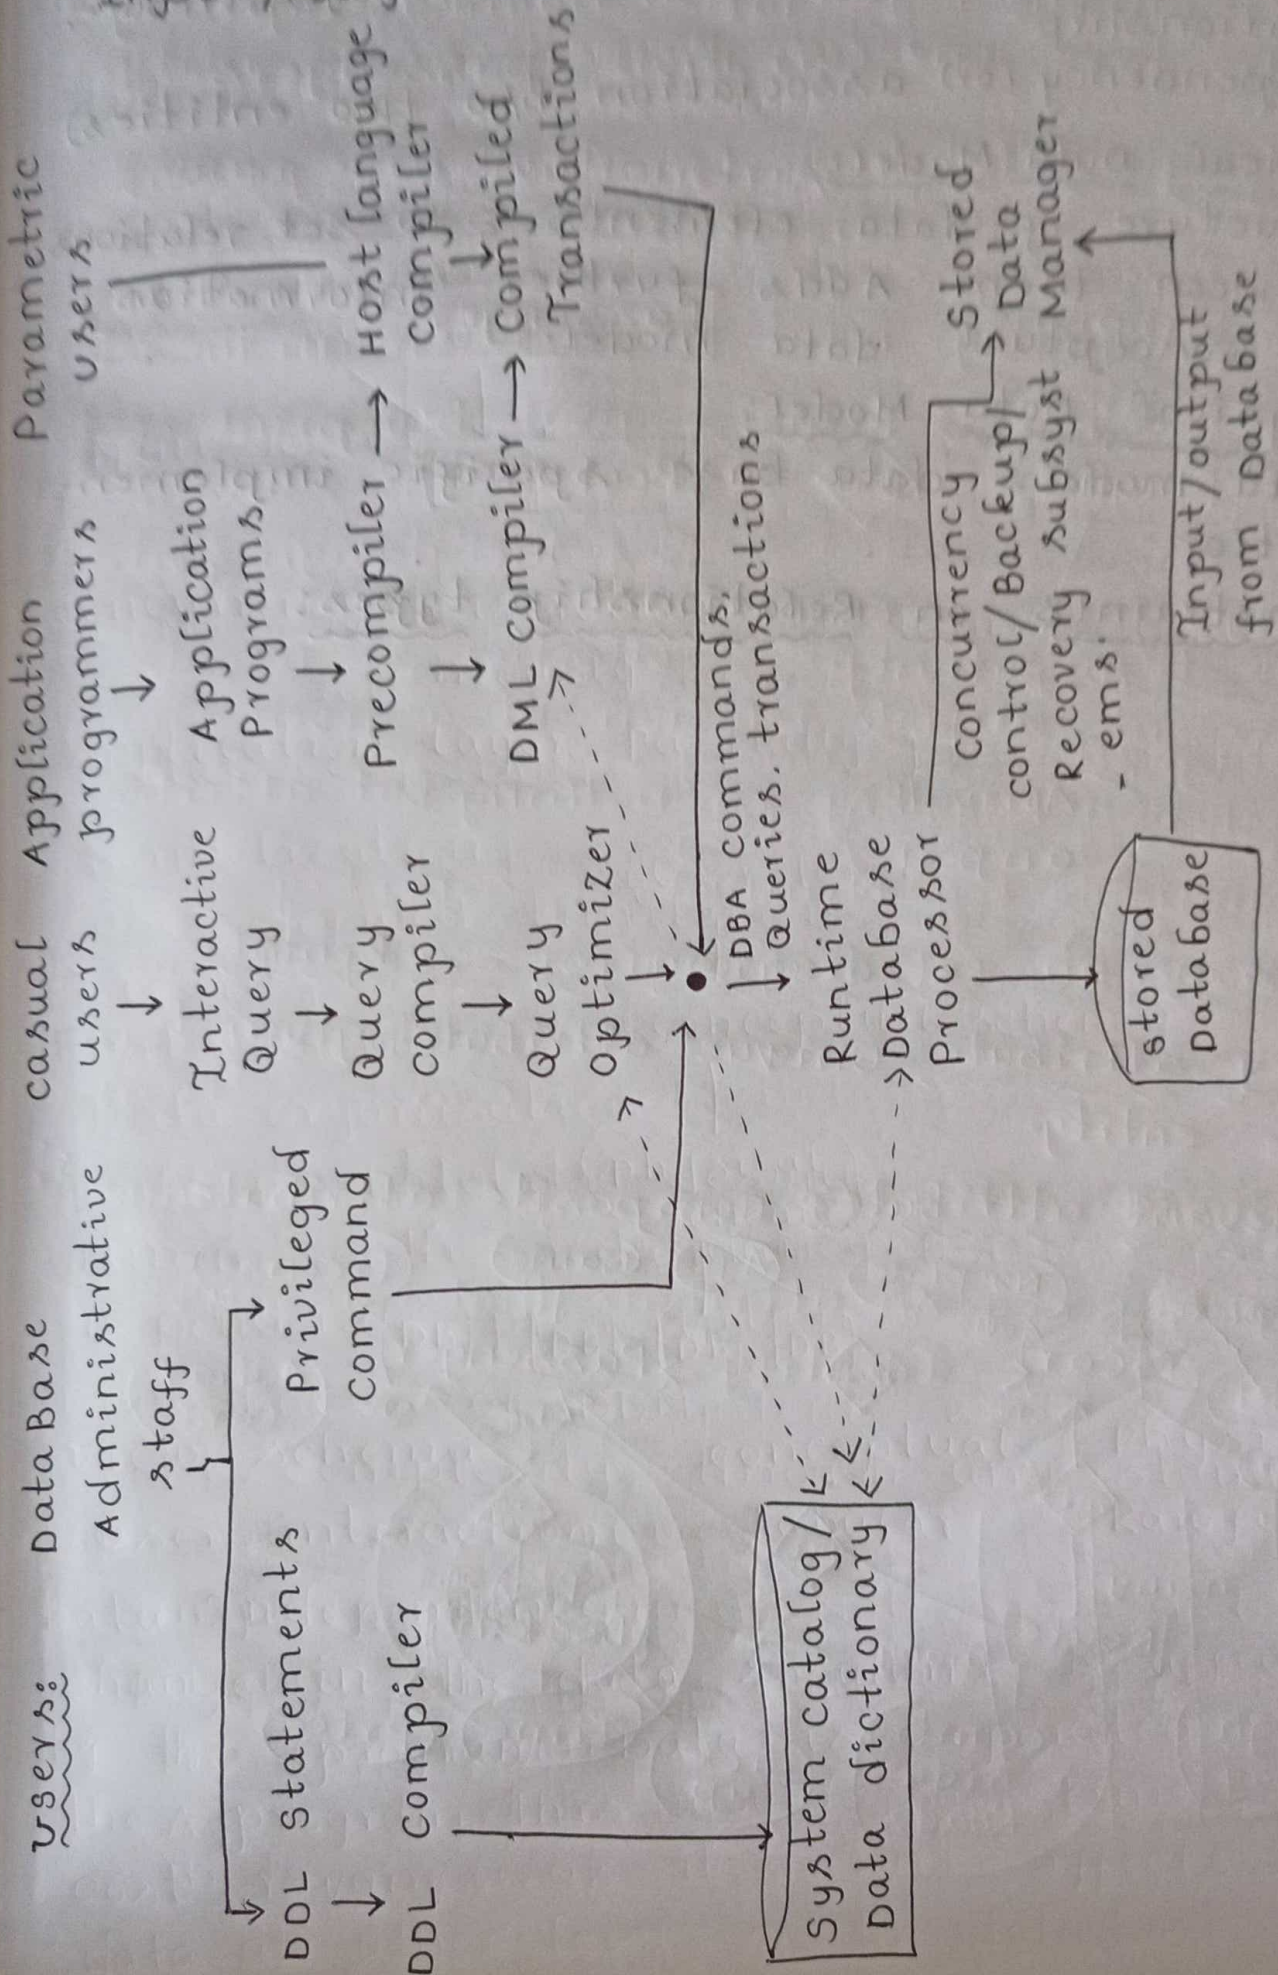 users:
DataBase
Administrative
staff
casual
users
Application
programmers
Parametric
users
DDL statements
Privileged
command
Interactive
Query
Application
Programs.
DDL compiler
Query
compiler
Precompiler
Host language
compiler
Query
optimizer
DML compiler
compiled
Transactions
DBA commands,
Queries, transactions
System catalog/
Data dictionary
Runtime
Database
Processor
concurrency
control/Backup/
Recovery subsyst
- ems.
Stored
Data
Manager
stored
Database
Input/output
from Database